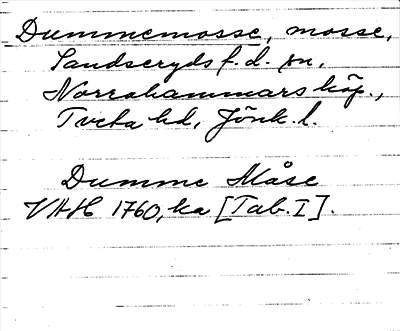 Dummemosse, mosse,
Sandseryds f.d. sn,
Norrahammars köp.,
Tveta hd, Jönk. l.
Dumme Måse
VAH 1760, ka [Tab. I].